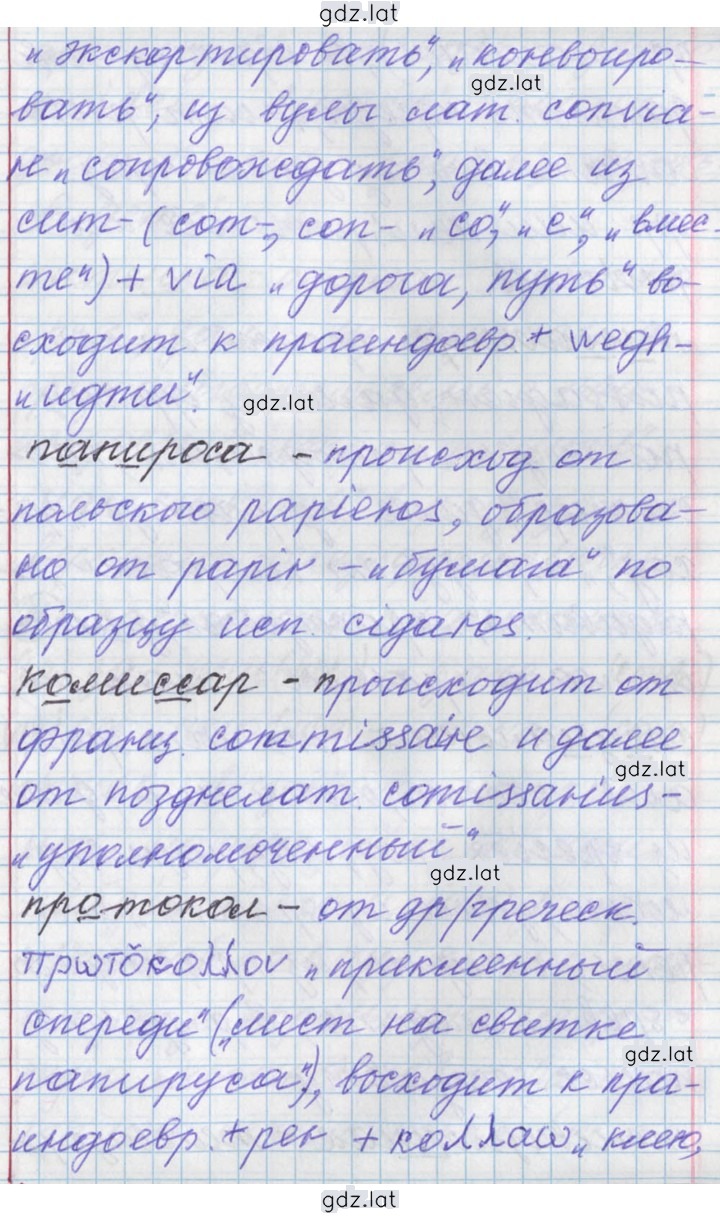 gdz.lat
„экскортировать“, „конвоиро-
gdz.lat
вать“, из вулы лат. convia-
re „сопровождать“, далее из
cum- (com-, con- „со“, „с“, „вмес-
те“) + via „дорога, путь“ во-
сходит к праиндоевр. + wegh-
„идти“.
gdz.lat
папироса - происход. от
польского papieros, образова-
но от papir - „бумага“ по
образцу исп. cigaros.
комиссар - происходит от
франц. commissaire и далее
gdz.lat
от позднелат. comissarius -
„уполномоченный“
gdz.lat
протокол - от др/греческ.
πρωτŏκολλου „приклеенный
спереди“ („лист на свитке
gdz.lat
папируса“), восходит к пра-
индоевр. + per + κολλαω „клею,
gdz.lat